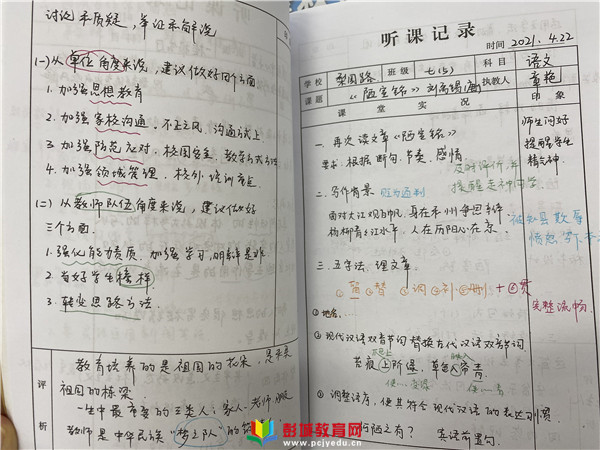 讨论 来质疑，举证来解说
(一) 从单位角度来说，建议做好四个方面
1. 加强思想教育
2. 加强家校沟通，不正之风，沟通方式上
3. 加强防范应对，校园安全，教学方式方法
4. 加强领域管理，校外培训
(二) 从教师队伍角度来说，建议做好
三个方面.
1. 强化能力素质，加强学习，明辨是非
2. 当好学生榜样
3. 转变思路方法
评析
教育培养的是祖国的花朵，是未来
祖国的栋梁.
一生中最重要的三类人：家人、老师
教师是中华民族“梦之队”的筑
听课记录
时间 2021.4.22
学校 梨园路 班级 七(5) 科目 语文
课题 《陋室铭》刘禹锡(唐) 执教人 章艳
课堂实况 印象
一. 再次读文章《陋室铭》
要求：根据断句、节奏、感情
及时评价，并
提醒走神同学
师生问好
提醒学生
精气神
二. 写作背景 贬为通判
面对大江观白帆，身在和州争思辩
杨柳青青江水平，人在历阳心在京.
被知县欺辱
愤怒写下本文
三. 五字法 理文章.
①留 ②替 ③调 ④补 ⑤删 + ⑥贯
完整 流畅
①地名……
②现代汉语双音节词替换古代汉语单音节词
苔痕上阶绿，草色入帘青
③ 调整语序，使其符合现代汉语的表达习惯
何陋之有？ 宾语前置句.
彭泽教育网
www.pcjyedu.cn